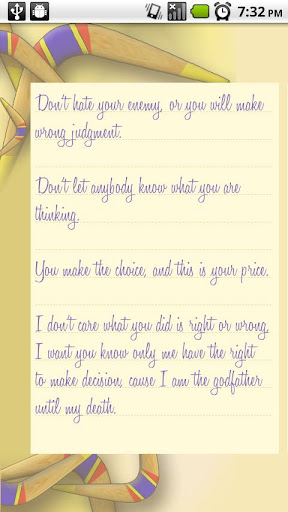 7:32 PM
Don't hate your enemy, or you will make
wrong judgment.
Don't let anybody know what you are
thinking.
You make the choice, and this is your price.
I don't care what you did is right or wrong,
I want you know only me have the right
to make decision, cause I am the godfather
until my death.